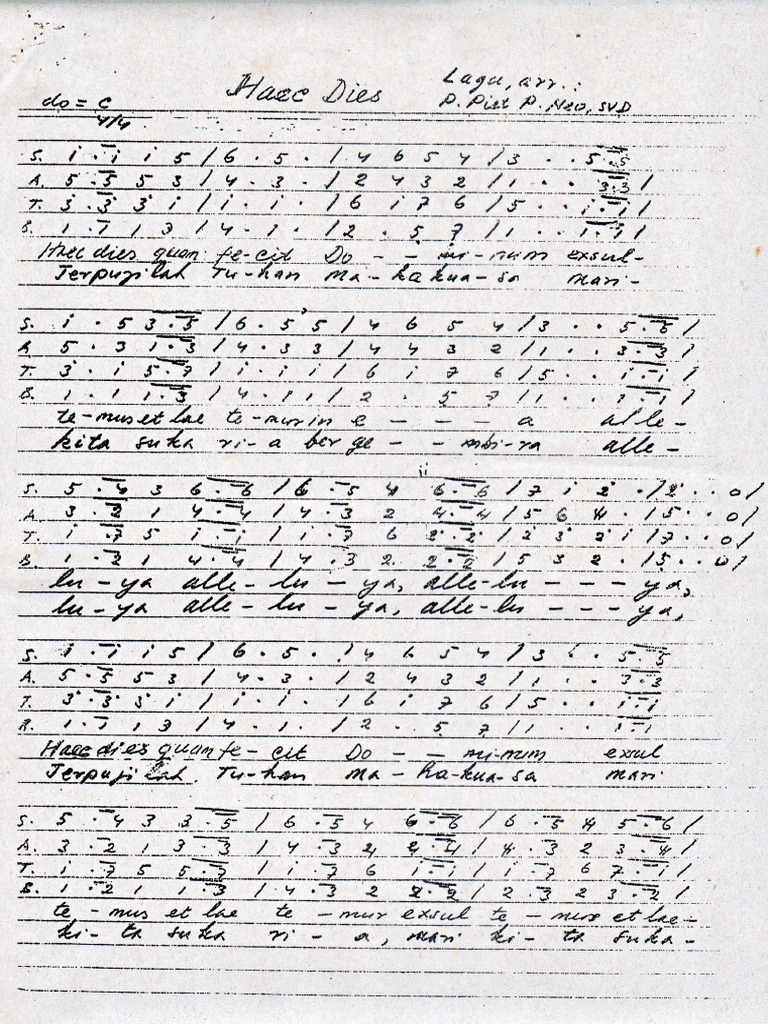 Haec Dies
Lagu, arr.:
P. Piet P. Neo, SVD
do = c
4/4
S. i . i i 5 / 6 . 5 . / 4 6 5 4 / 3 . . 5 . 5
A. 5 . 5 5 3 / 4 . 3 . / 2 4 3 2 / 1 . . 3 . 3 /
T. 3 . 3 3 i / i . i . / 6 i 7 6 / 5 . . i . i /
B. 1 . 1 1 3 / 4 . 1 . / 2 . 5 7 / 1 . . 1 . 1 /
Haec dies quam fe-cit Do - - mi-num exsul-
Terpujilah Tu-han Ma-ha kua-sa mari-
S. i . 5 3 . 5 / 6 . 5 5 / 4 6 5 4 / 3 . . 5 . 5 /
A. 5 . 3 1 . 3 / 4 . 3 3 / 4 4 3 2 / 1 . . 3 . 3 /
T. 3 . i 5 . 7 / i . i i / 6 i 7 6 / 5 . . i . i /
B. 1 . 1 1 . 3 / 4 . 1 1 / 2 . 5 7 / 1 . . 1 . 1 /
te-mus et lae te-mur in e - - - a alle-
kita suka ri-a ber ge - - mbi-ra alle-
S. 5 . 4 3 6 . 6 / 6 . 5 4 6 . 6 / 7 i 2 . / 2 . . 0 /
A. 3 . 2 1 4 . 4 / 4 . 3 2 4 . 4 / 5 6 4 . / 5 . . 0 /
T. i . 7 5 i . i / i . 7 6 2 . 2 / 2 3 2 i / 7 . . 0 /
B. 1 . 2 1 4 . 4 / 4 . 3 2 2 . 2 / 5 3 2 . / 5 . . 0 /
lu-ya alle-lu-ya, alle-lu - - - ya,
lu-ya alle-lu-ya, alle-lu - - - ya,
S. i . i i 5 / 6 . 5 . / 4 6 5 4 / 3 . . 5 . 5
A. 5 . 5 5 3 / 4 . 3 . / 2 4 3 2 / 1 . . 3 . 3
T. 3 . 3 3 i / i . i . / 6 i 7 6 / 5 . . i . i
B. 1 . 1 1 3 / 4 . 1 . / 2 . 5 7 / 1 . . 1 . 1
Haec dies quam fe-cit Do - - mi-num exsul
Terpujilah Tu-han Ma-ha-kua-sa mari
S. 5 . 4 3 3 . 5 / 6 . 5 4 6 . 6 / 6 . 5 4 5 . 6 /
A. 3 . 2 1 3 . 3 / 4 . 3 2 2 . 4 / 4 . 3 2 3 . 4 /
T. i . 7 5 5 . 7 / i . 7 6 i . i / i . 7 6 7 . i /
B. 1 . 2 1 1 . 3 / 4 . 3 2 2 . 2 / 2 . 3 2 3 . 2 /
te-mus et lae te-mur exsul te-mus et lae-
ki-ta suka ri-a, mari ki-ta suka-